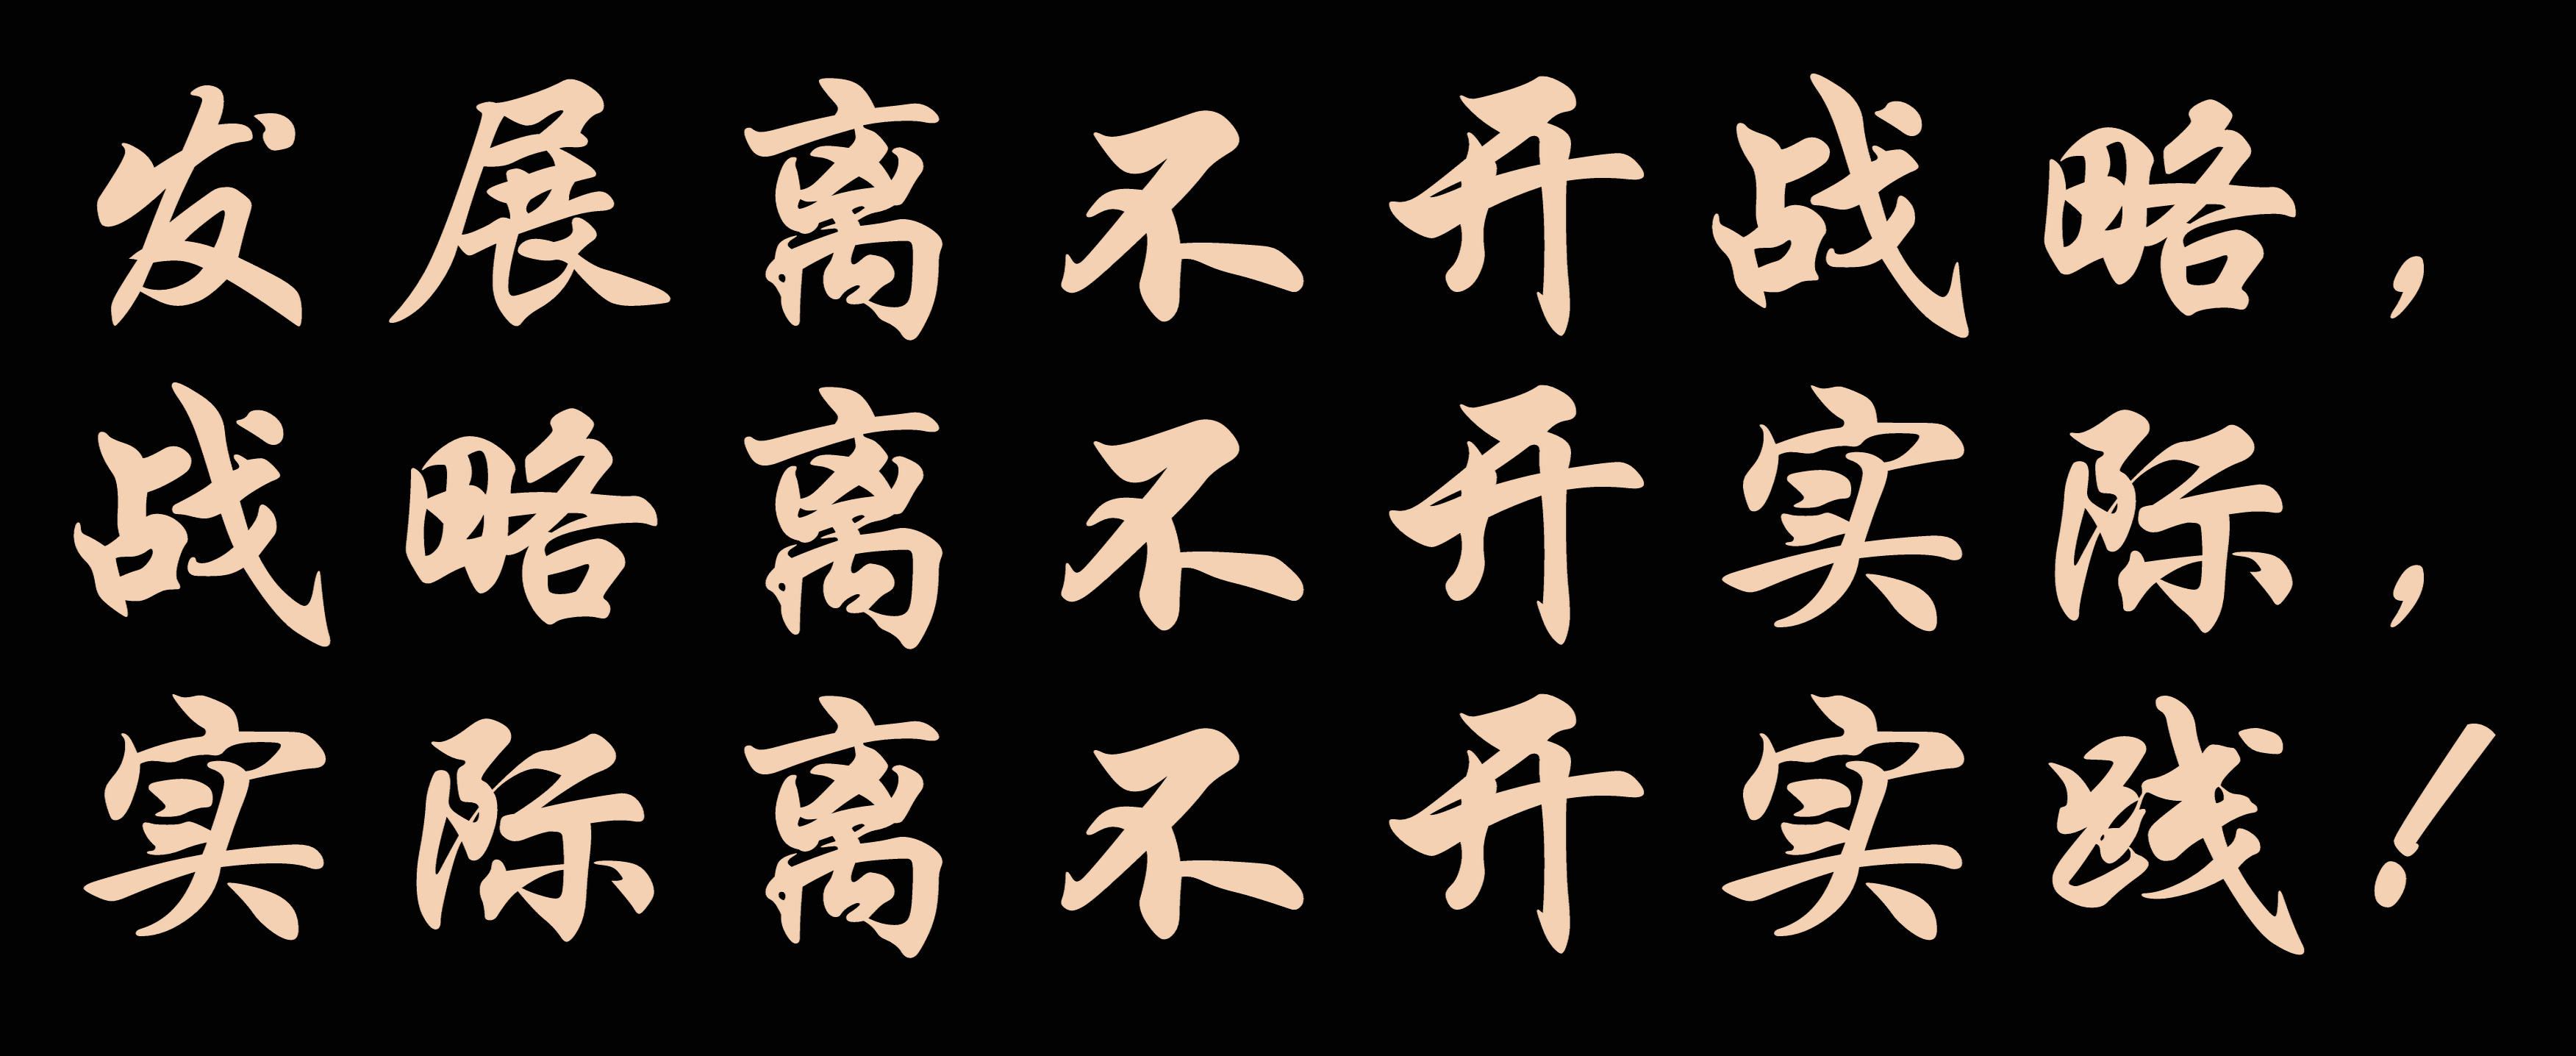 发展离不开战略，
战略离不开实际，
实际离不开实践！